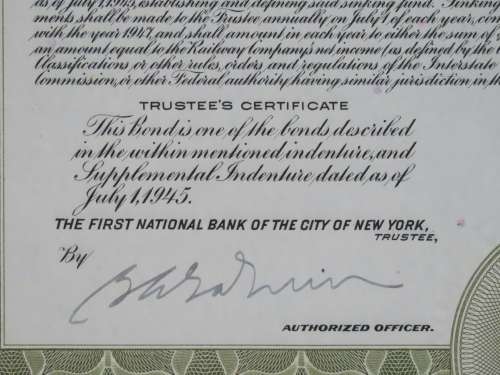 as of July 1, 1945, establishing and defining said sinking fund. Sinking
ments shall be made to the Trustee annually on July 1 of each year, co
with the year 1947, and shall amount in each year to either the sum of
an amount equal to the Railway Company's net income (as defined by the
Classifications or other rules, orders and regulations of the Interstate
Commission, or other Federal authority having similar jurisdiction in th
TRUSTEE'S CERTIFICATE
This Bond is one of the bonds described
in the within mentioned indenture, and
Supplemental Indenture, dated as of
July 1, 1945.
THE FIRST NATIONAL BANK OF THE CITY OF NEW YORK,
TRUSTEE,
By
AUTHORIZED OFFICER.